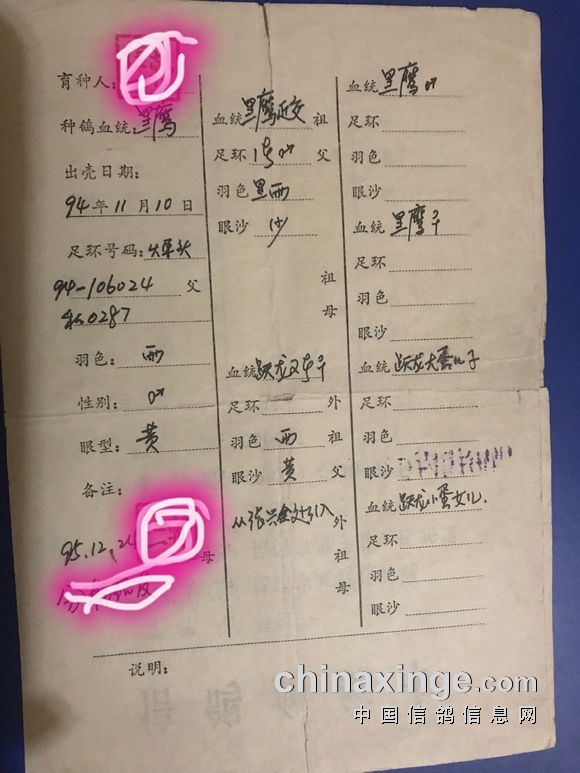 育种人:
种鸽血统:黑鹰
出壳日期:
94年11月10日
足环号码:火车头
94-106024 父
0287
羽色: 雨
性别: ♂
眼型: 黄
备注:
95.12.24
母
血统黑鹰 祖
足环 1号♂ 父
羽色 黑雨
眼沙 沙
祖
母
血统跃龙 号♀
足环 外
羽色 雨 祖
眼沙 黄 父
从张兴全处引入 外
祖
母
血统黑鹰♂
足环
羽色
眼沙
血统 黑鹰♀
足环
羽色
眼沙
血统跃龙大蛋儿子
足环
羽色
眼沙
血统跃龙小蛋女儿.
足环
羽色
眼沙
说明:
chinaxinge.com
中国信鸽信息网